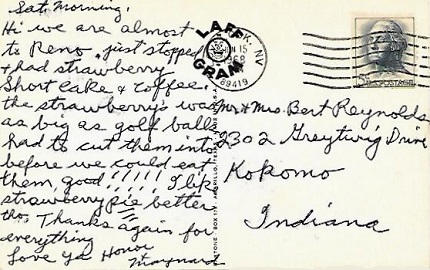 Sat. Morning,
Hi we are almost
to Reno just stopped
+ had strawberry
Short Cake + coffee.
the strawberry's was
as big as golf balls
had to cut them into
before we could eat
them, good!!!!! I like
strawberry pie better
tho, Thanks again for
everything
Love Ya Honor
Maynard
LAFF
GRAM
NV
JUN 15
1968
89419
5¢
U.S. POSTAGE
Mr + Mrs. Bert Reynolds
2302 Greytwig Drive
Kokomo
Indiana